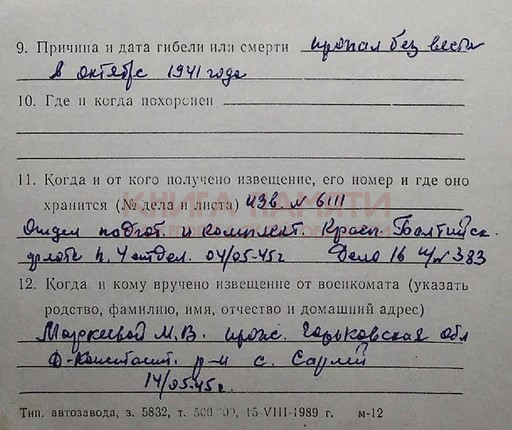 9. Причина и дата гибели или смерти пропал без вести
в октябре 1941 года
10. Где и когда похоронен
11. Когда и от кого получено извещение, его номер и где оно
хранится (№ дела и листа) изв. N 6111
КНИГА ПАМЯТИ
Отдел подгот. и комплект. Красн. Балтийск.
флота п. 4 отдел. 04/05-45г Дело 16 383
12. Когда и кому вручено извещение от военкомата (указать
родство, фамилию, имя, отчество и домашний адрес)
М.В. прож. Горьковская обл
Д-Констант. р-н с. Сарлей
14/05-45г.
Тип. автозавода, з. 5832, т. 15-VIII-1989 г. м-12